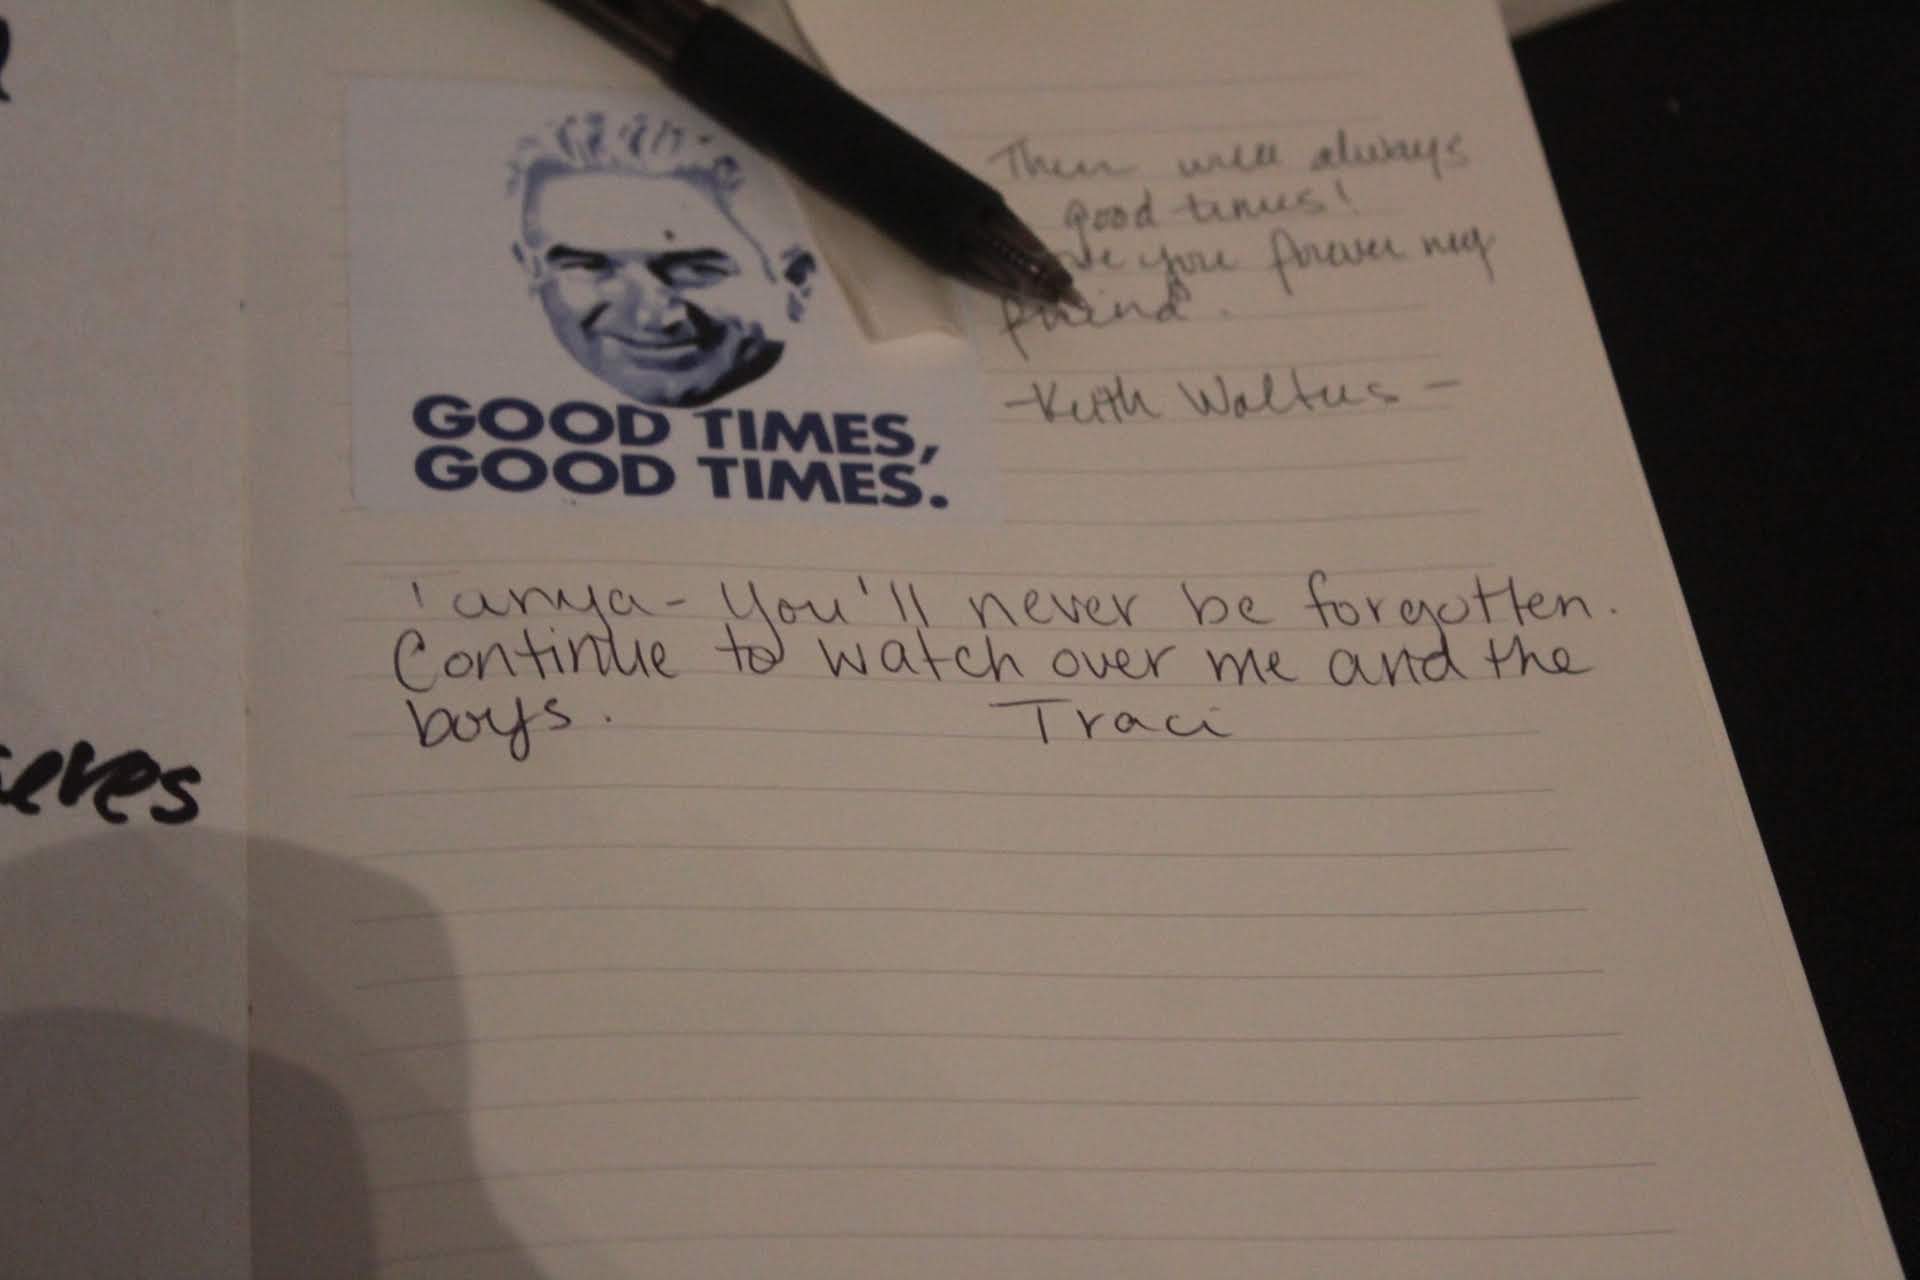 There will always
good times!
you forever my
friend.
-Keith Walters-
GOOD TIMES,
GOOD TIMES.
Tanya- You'll never be forgotten.
Continue to watch over me and the
boys. Traci